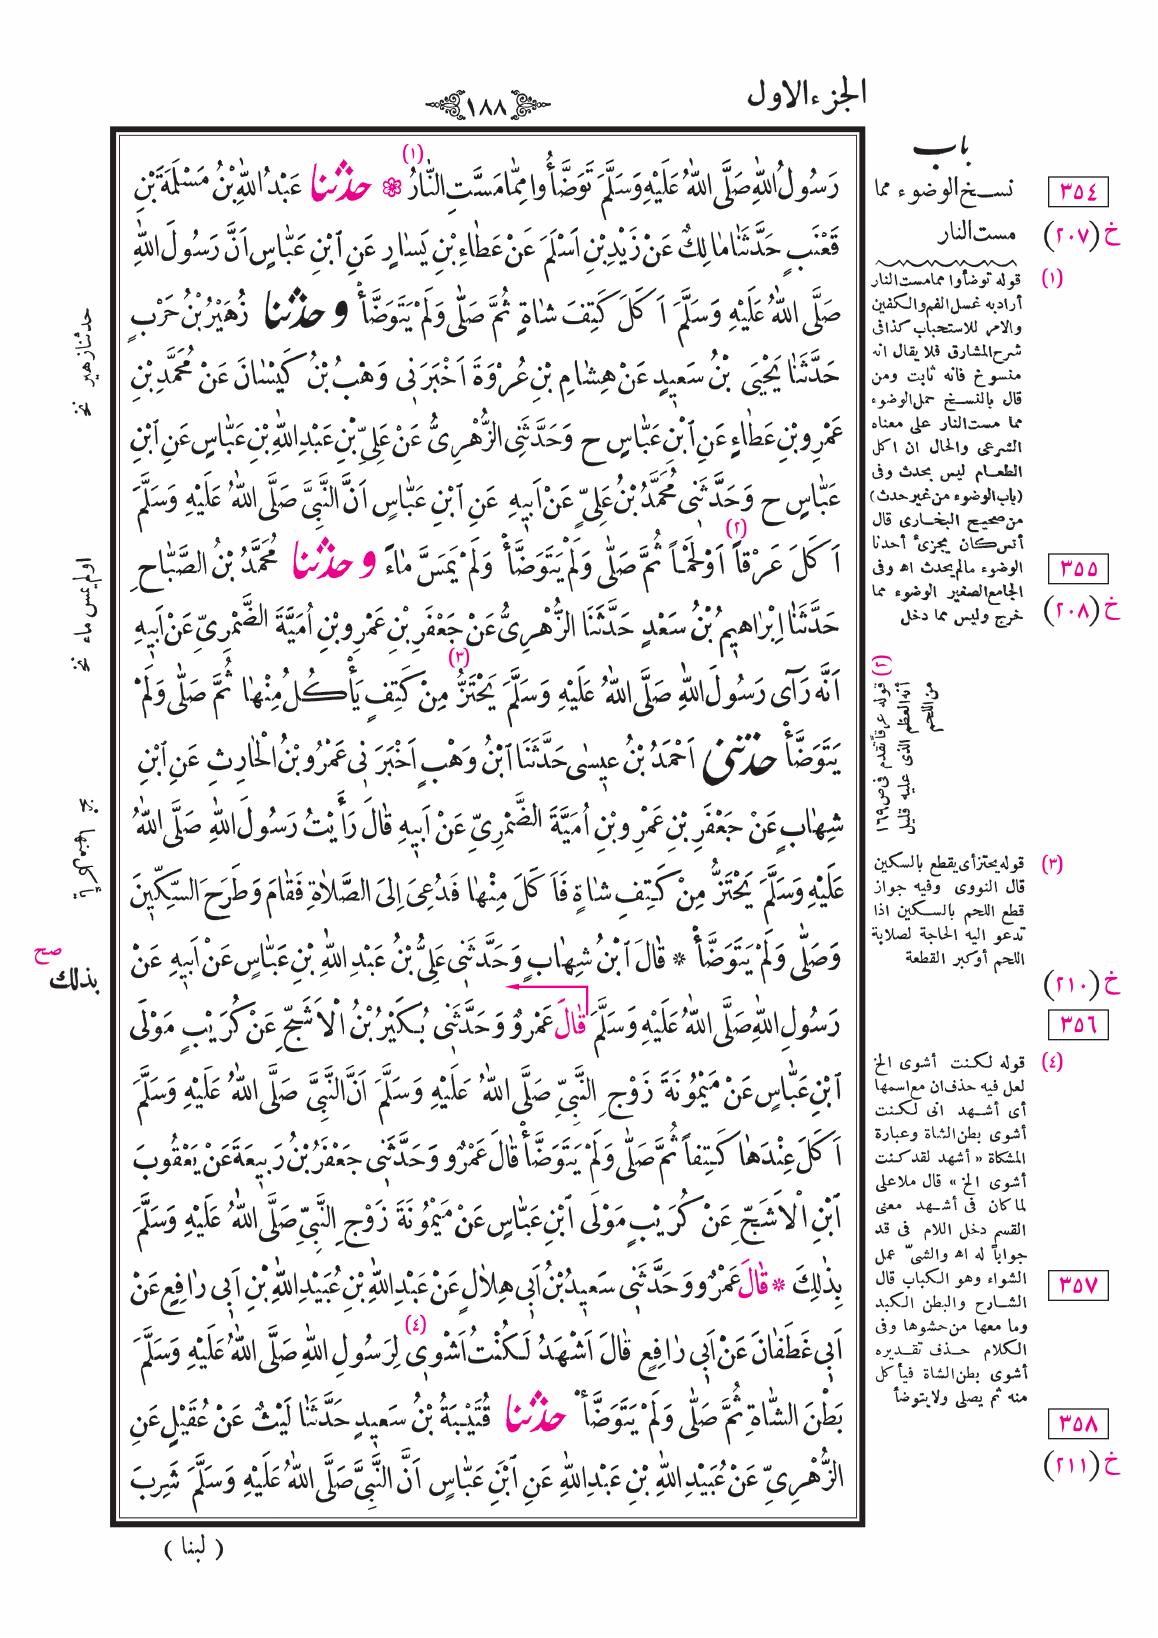 الجزء الاول
١٨٨
رَسُولُ اللّٰهِ صَلَّى اللّٰهُ عَلَيْهِ وَسَلَّمَ تَوَضَّأُوا مِمَّا مَسَّتِ النَّارُ (١) حَدَّثَنَا عَبْدُ اللّٰهِ بْنُ مَسْلَمَةَ بْنِ
قَعْنَبٍ حَدَّثَنَا مَالِكٌ عَنْ زَيْدِ بْنِ اَسْلَمَ عَنْ عَطَاءِ بْنِ يَسَارٍ عَنِ ابْنِ عَبَّاسٍ اَنَّ رَسُولَ اللّٰهِ
صَلَّى اللّٰهُ عَلَيْهِ وَسَلَّمَ اَكَلَ كَتِفَ شَاةٍ ثُمَّ صَلّٰى وَلَمْ يَتَوَضَّأْ وحَدَّثَنَا زُهَيْرُ بْنُ حَرْبٍ
حَدَّثَنَا يَحْيَى بْنُ سَعِيدٍ عَنْ هِشَامِ بْنِ عُرْوَةَ اَخْبَرَنِى وَهْبُ بْنُ كَيْسَانَ عَنْ مُحَمَّدِ بْنِ
عَمْرِو بْنِ عَطَاءٍ عَنِ ابْنِ عَبَّاسٍ ح وَحَدَّثَنِى الزُّهْرِىُّ عَنْ عَلِىِّ بْنِ عَبْدِ اللّٰهِ بْنِ عَبَّاسٍ عَنِ ابْنِ
عَبَّاسٍ ح وَحَدَّثَنِى مُحَمَّدُ بْنُ عَلِىٍّ عَنْ اَبِيهِ عَنِ ابْنِ عَبَّاسٍ اَنَّ النَّبِىَّ صَلَّى اللّٰهُ عَلَيْهِ وَسَلَّمَ
اَكَلَ عَرْقاً (٢) اَوْ لَحْماً ثُمَّ صَلّٰى وَلَمْ يَتَوَضَّأْ وَلَمْ يَمَسَّ مَاءً وحَدَّثَنَا مُحَمَّدُ بْنُ الصَّبَّاحِ
حَدَّثَنَا اِبْرَاهِيمُ بْنُ سَعْدٍ حَدَّثَنَا الزُّهْرِىُّ عَنْ جَعْفَرِ بْنِ عَمْرِو بْنِ اُمَيَّةَ الضَّمْرِىِّ عَنْ اَبِيهِ
اَنَّهُ رَآى رَسُولَ اللّٰهِ صَلَّى اللّٰهُ عَلَيْهِ وَسَلَّمَ يَحْتَزُّ (٣) مِنْ كَتِفٍ يَأْكُلُ مِنْهَا ثُمَّ صَلّٰى وَلَمْ
يَتَوَضَّأْ حَدَّثَنِى اَحْمَدُ بْنُ عِيسٰى حَدَّثَنَا ابْنُ وَهْبٍ اَخْبَرَنِى عَمْرُو بْنُ الْحَارِثِ عَنِ ابْنِ
شِهَابٍ عَنْ جَعْفَرِ بْنِ عَمْرِو بْنِ اُمَيَّةَ الضَّمْرِىِّ عَنْ اَبِيهِ قَالَ رَأَيْتُ رَسُولَ اللّٰهِ صَلَّى اللّٰهُ
عَلَيْهِ وَسَلَّمَ يَحْتَزُّ مِنْ كَتِفِ شَاةٍ فَاَكَلَ مِنْهَا فَدُعِىَ اِلَى الصَّلَاةِ فَقَامَ وَطَرَحَ السِّكِّينَ
وَصَلّٰى وَلَمْ يَتَوَضَّأْ * قَالَ ابْنُ شِهَابٍ وَحَدَّثَنِى عَلِىُّ بْنُ عَبْدِ اللّٰهِ بْنِ عَبَّاسٍ عَنْ اَبِيهِ عَنْ
رَسُولِ اللّٰهِ صَلَّى اللّٰهُ عَلَيْهِ وَسَلَّمَ قَالَ عَمْرٌو وَحَدَّثَنِى بُكَيْرُ بْنُ الْاَشَجِّ عَنْ كُرَيْبٍ مَوْلَى
ابْنِ عَبَّاسٍ عَنْ مَيْمُونَةَ زَوْجِ النَّبِىِّ صَلَّى اللّٰهُ عَلَيْهِ وَسَلَّمَ اَنَّ النَّبِىَّ صَلَّى اللّٰهُ عَلَيْهِ وَسَلَّمَ
اَكَلَ عِنْدَهَا كَتِفاً ثُمَّ صَلّٰى وَلَمْ يَتَوَضَّأْ قَالَ عَمْرٌو وَحَدَّثَنِى جَعْفَرُ بْنُ رَبِيعَةَ عَنْ يَعْقُوبَ
ابْنِ الْاَشَجِّ عَنْ كُرَيْبٍ مَوْلَى ابْنِ عَبَّاسٍ عَنْ مَيْمُونَةَ زَوْجِ النَّبِىِّ صَلَّى اللّٰهُ عَلَيْهِ وَسَلَّمَ
بِذٰلِكَ * قَالَ عَمْرٌو وَحَدَّثَنِى سَعِيدُ بْنُ اَبِى هِلَالٍ عَنْ عَبْدِ اللّٰهِ بْنِ عُبَيْدِ اللّٰهِ بْنِ اَبِى رَافِعٍ عَنْ
اَبِى غَطَفَانَ عَنْ اَبِى رَافِعٍ قَالَ اَشْهَدُ لَكُنْتُ اَشْوِى (٤) لِرَسُولِ اللّٰهِ صَلَّى اللّٰهُ عَلَيْهِ وَسَلَّمَ
بَطْنَ الشَّاةِ ثُمَّ صَلّٰى وَلَمْ يَتَوَضَّأْ حَدَّثَنَا قُتَيْبَةُ بْنُ سَعِيدٍ حَدَّثَنَا لَيْثٌ عَنْ عُقَيْلٍ عَنِ
الزُّهْرِىِّ عَنْ عُبَيْدِ اللّٰهِ بْنِ عَبْدِ اللّٰهِ عَنِ ابْنِ عَبَّاسٍ اَنَّ النَّبِىَّ صَلَّى اللّٰهُ عَلَيْهِ وَسَلَّمَ شَرِبَ
( لبنا )
باب
نسخ الوضوء مما
مست النار
٣٥٤
خ (٢٠٧)
(١) قوله توضأوا مما مست النار
أراد به غسل الفم والكفين
والامر للاستحباب كذا فى
شرح المشارق فلا يقال انه
منسوخ فانه ثابت ومن
قال بالنسخ حمل الوضوء
مما مست النار على معناه
الشرعى والحال ان اكل
الطعام ليس بحدث وفى
(باب الوضوء من غير حدث)
من صحيح البخارى قال
أنس كان يجزئ أحدنا
الوضوء مالم يحدث اه وفى
الجامع الصغير الوضوء مما
خرج وليس مما دخل
٣٥٥
خ (٢٠٨)
(٢) قوله عرقاً تقدم فى ص ١٦٩
أنه العظم الذى عليه قليل
من اللحم
(٣) قوله يحتز أى يقطع بالسكين
قال النووى وفيه جواز
قطع اللحم بالسكين اذا
تدعو اليه الحاجة لصلابة
اللحم أو كبر القطعة
خ (٢١٠)
٣٥٦
(٤) قوله لكنت أشوى الخ
لعل فيه حذف ان مع اسمها
أى أشهد انى لكنت
أشوى بطن الشاة وعبارة
المشكاة « أشهد لقد كنت
أشوى الخ » قال ملا على
لما كان فى أشهد معنى
القسم دخل اللام فى قد
جواباً له اه والشىّ عمل
الشواء وهو الكباب قال
الشارح والبطن الكبد
وما معها من حشوها وفى
الكلام حذف تقديره
أشوى بطن الشاة فيأكل
منه ثم يصلى ولا يتوضأ
٣٥٧
٣٥٨
خ (٢١١)
حدثنا زهير نخ
اولم يمس ماء نخ
صح
بذلك